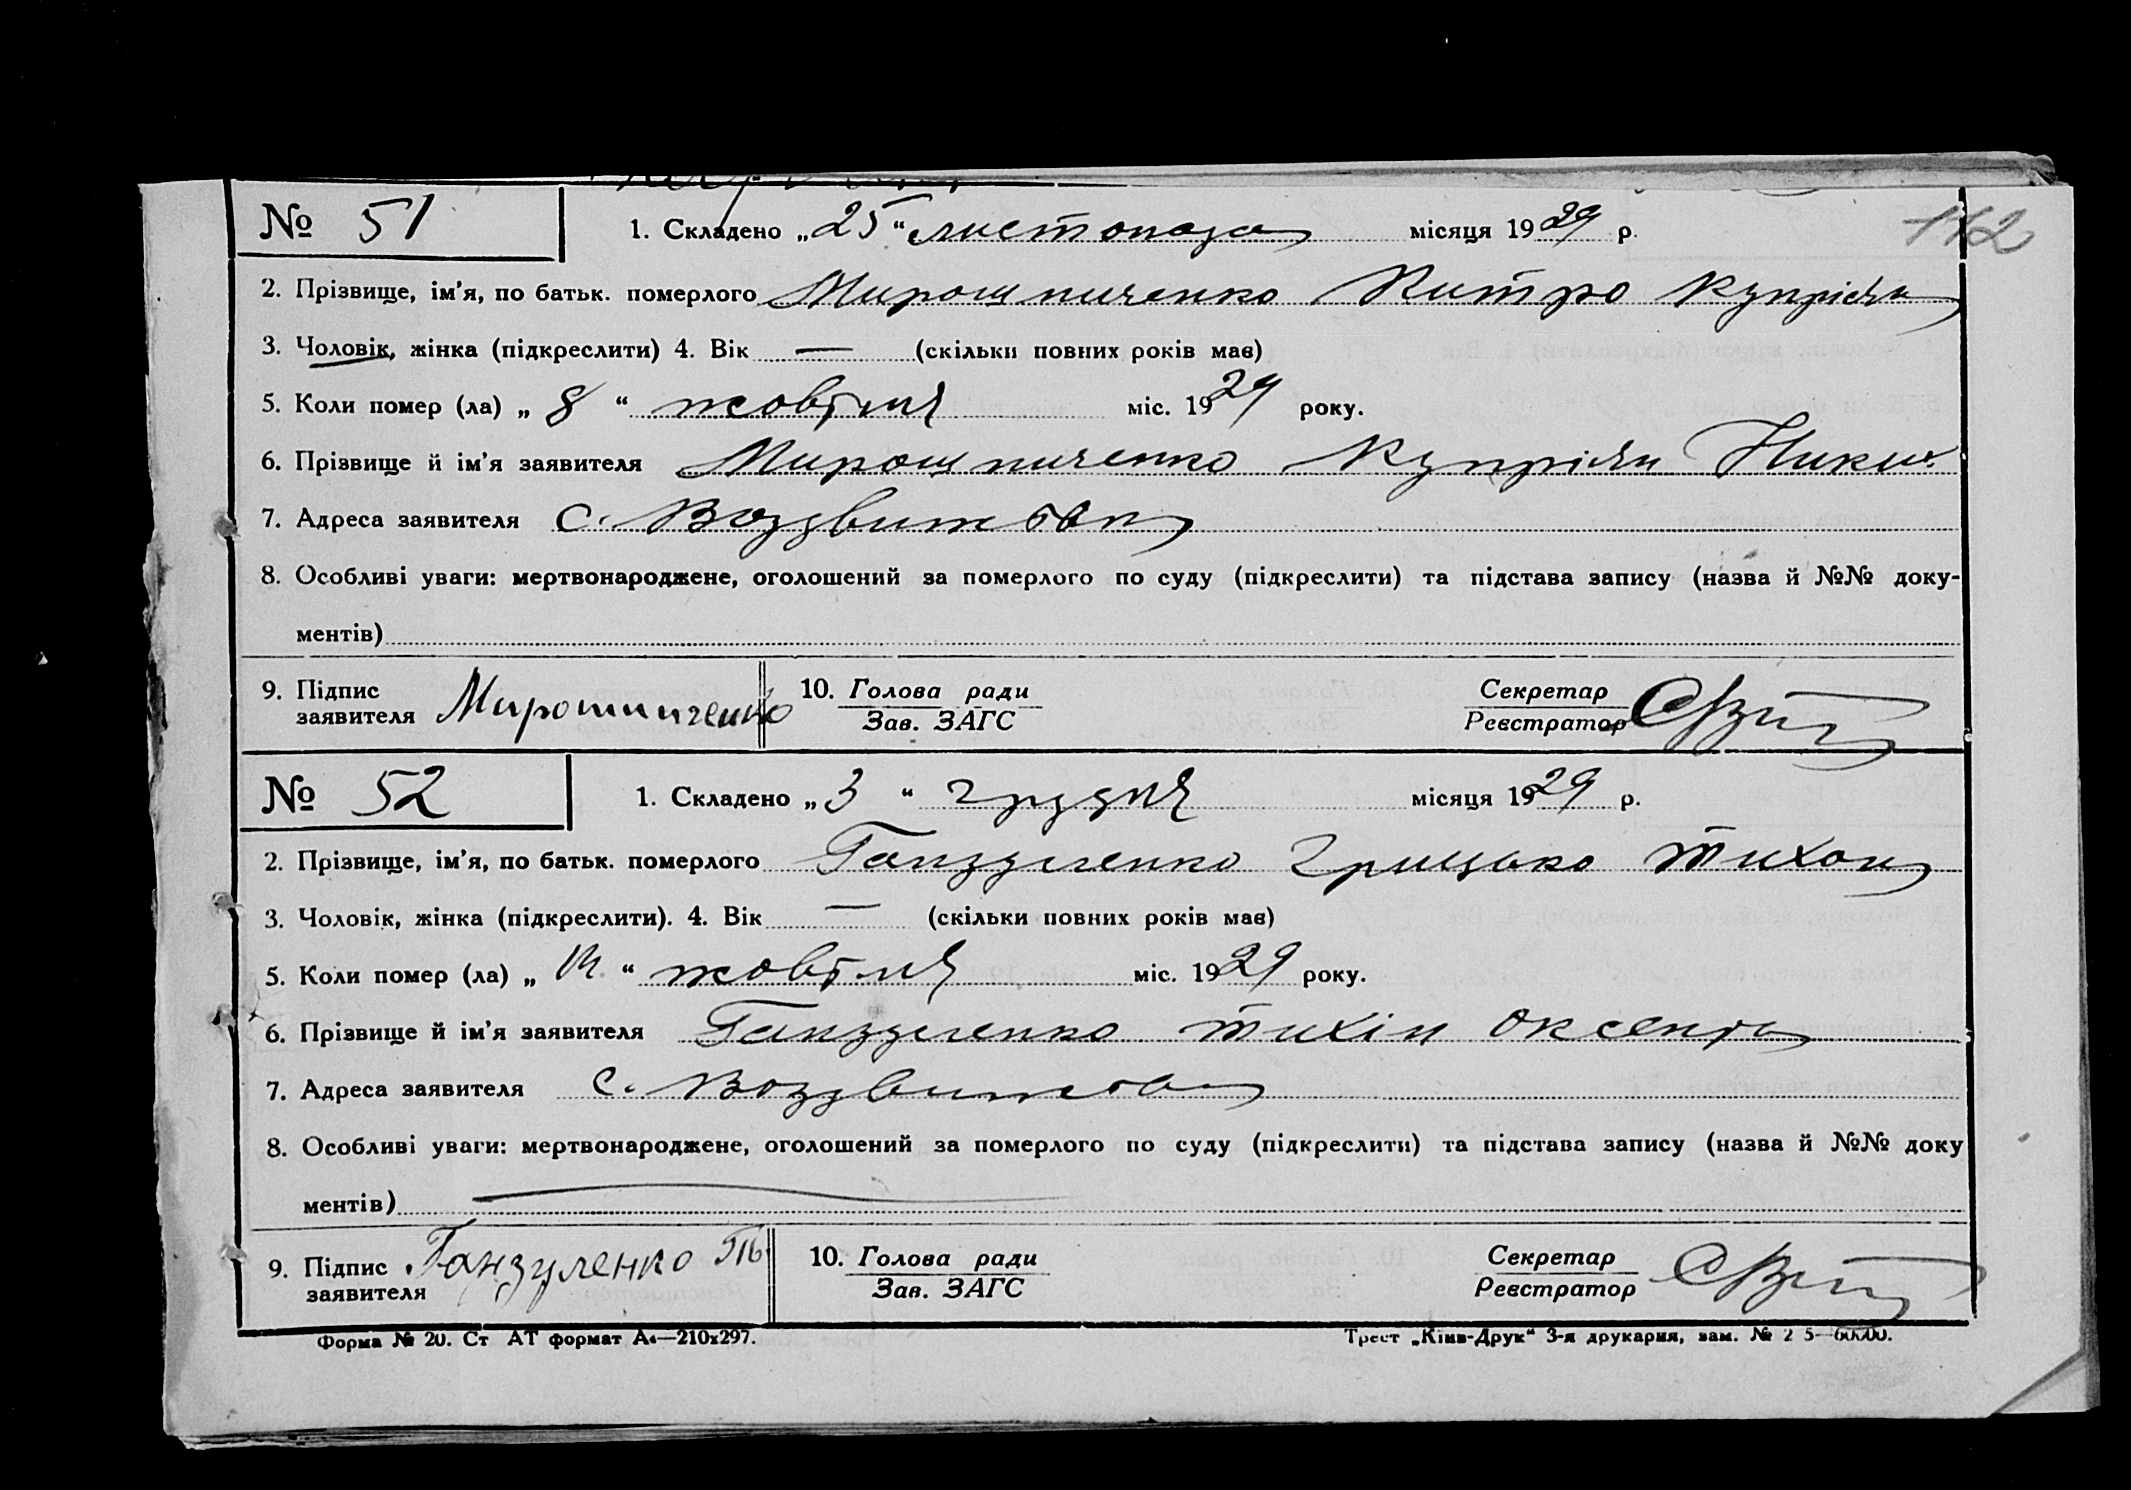 112
№ 51 1. Складено „25“ листопада місяця 1929 р.
2. Прізвище, ім'я, по батьк. померлого Мирошниченко Купріян
3. Чоловік, жінка (підкреслити) 4. Вік — (скільки повних років має)
5. Коли помер (ла) „8“ жовтня міс. 1929 року.
6. Прізвище й ім'я заявителя Мирошниченко Купріян
7. Адреса заявителя с. Воздвиженка
8. Особливі уваги: мертвонароджене, оголошений за померлого по суду (підкреслити) та підстава запису (назва й №№ доку-
ментів)
9. Підпис заявителя Мирошниченко 10. Голова ради Секретар
Зав. ЗАГС Реєстратор
№ 52 1. Складено „3“ грудня місяця 1929 р.
2. Прізвище, ім'я, по батьк. померлого Ганзуленко Грицько Тихон
3. Чоловік, жінка (підкреслити). 4. Вік — (скільки повних років має)
5. Коли помер (ла) „ “ жовтня міс. 1929 року.
6. Прізвище й ім'я заявителя Ганзуленко Тихін Оксент
7. Адреса заявителя с. Воздвиженка
8. Особливі уваги: мертвонароджене, оголошений за померлого по суду (підкреслити) та підстава запису (назва й №№ доку
ментів)
9. Підпис заявителя Ганзуленко 10. Голова ради Секретар
Зав. ЗАГС Реєстратор
Форма № 20. Ст АТ формат А4—210x297. Трест „Київ-Друк“ 3-я друкарня, зам. №